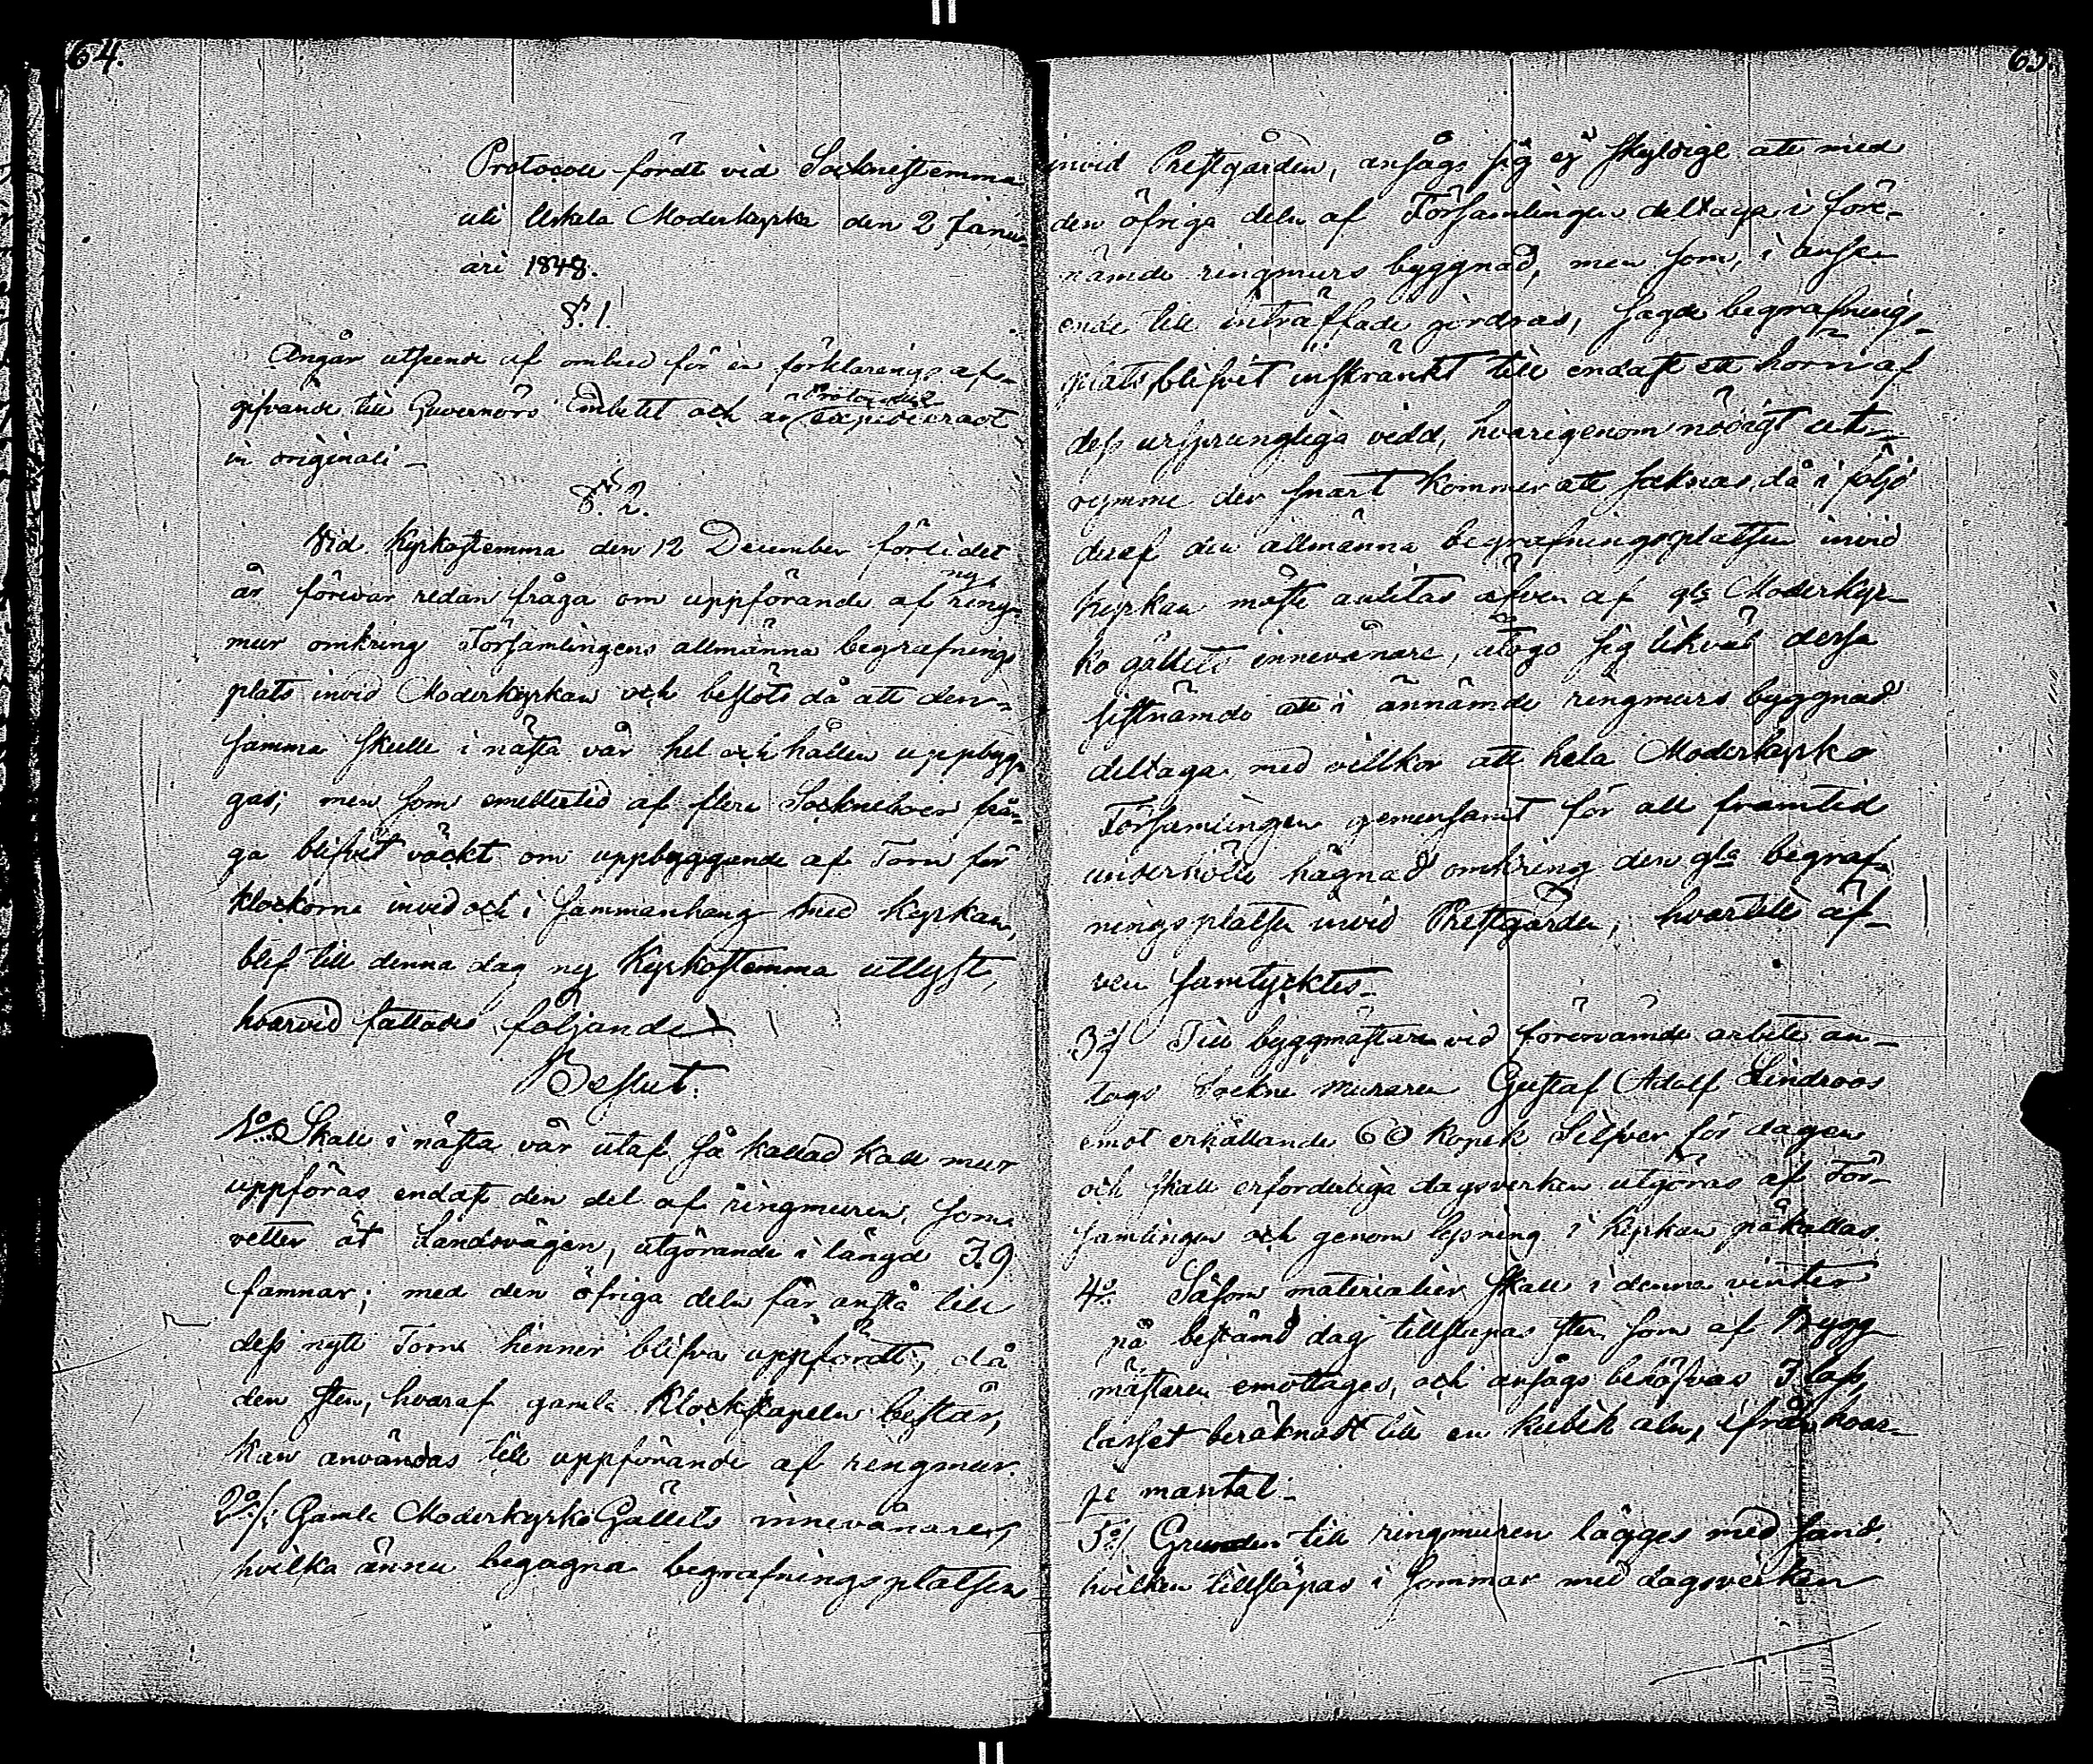 64.
Protocoll fördt vid Socknestemma
uti Uskela Moderkyrka den 2 Janu-
ari 1848.
§. 1.
Angår utseende af ombud för en förklarings af-
gifvande till Guvernörs Embetet och är Protocollet expedieradt
in originali –
§. 2.
Vid Kyrkostemma den 12 December förlidet
år förevar redan fråga om uppförande af ny ring-
mur omkring Församlingens allmänna begrafnings
plats invid Moderkyrkan och beslöts då att den-
samma skulle i nästa vår hel och hållen uppbyg-
gas; men som emellertid af flere Sockneboer frå-
ga blifvit väckt om uppbyggande af Torn för
klockorna invid och i sammanhang med Kyrkan,
blef till denna dag ny Kyrkostemma utlyst,
hvarvid fattades följande
Beslut.
1:o Skall i nästa vår utaf så kallad kall mur
uppföras endast den del af ringmuren, som
vetter åt Landsvägen, utgörande i längd 39
famnar; med den öfriga delen får anstå till
dess nytt Torn hinner blifva uppfördt, då
den sten, hvaraf gamla Klockstapeln består,
kan användas till uppförande af ringmur.
2:o/: Gamla Moderkyrko Gällets innevånare,
hvilka ännu begagna begrafningsplatsen
65.
invid Prestgården, ansågo sig ej skyldige att med
den öfriga delen af Församlingen deltaga i före-
nämde ringmurs byggnad, men som, i anse-
ende till inträffade jordras, sagde begrafnings-
plats blifvit inskränkt till endast ett hörn af
dess ursprungliga vidd, hvarigenom nödigt ut-
rymme der snart kommer att saknas, då i följd
deraf den allmänna begrafningsplatsen invid
kyrkan måste anlitas äfven af gla Moderkyr-
ko gällets innevånare, åtogo sig likväl desse
sistnämde att i ännämde ringmurs byggnad
deltaga, med villkor att hela Moderkyrko
Församlingen gemensamt för all framtid
underhölle hägnad omkring den gla begraf-
ningsplatsen invid Prestgården, hvartill äf-
ven samtycktes –
3:o/ Till byggmästare vid förenämde arbete an-
togs Sockne Muraren Gustaf Adolf Lindroos
emot erhållande 60 kopek Silfver för dagen
och skall erforderliga dagsverken utgöras af För-
samlingen och genom lysning i kyrkan påkallas.
4:o Såsom materialier skall i denna vinter
på bestämd dag tillsläpas sten som af Bygg-
mästaren emottages, och ansågs behöfvas 3 lass,
lasset beräknadt till en kubik aln, ifrån hvar-
je mantal –
5:o/ Grunden till ringmuren lägges med sand,
hvilken tillsläpas i sommar med dagsverken